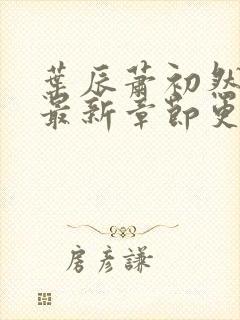 葉辰蕭初然
最新章節更
房彥謙